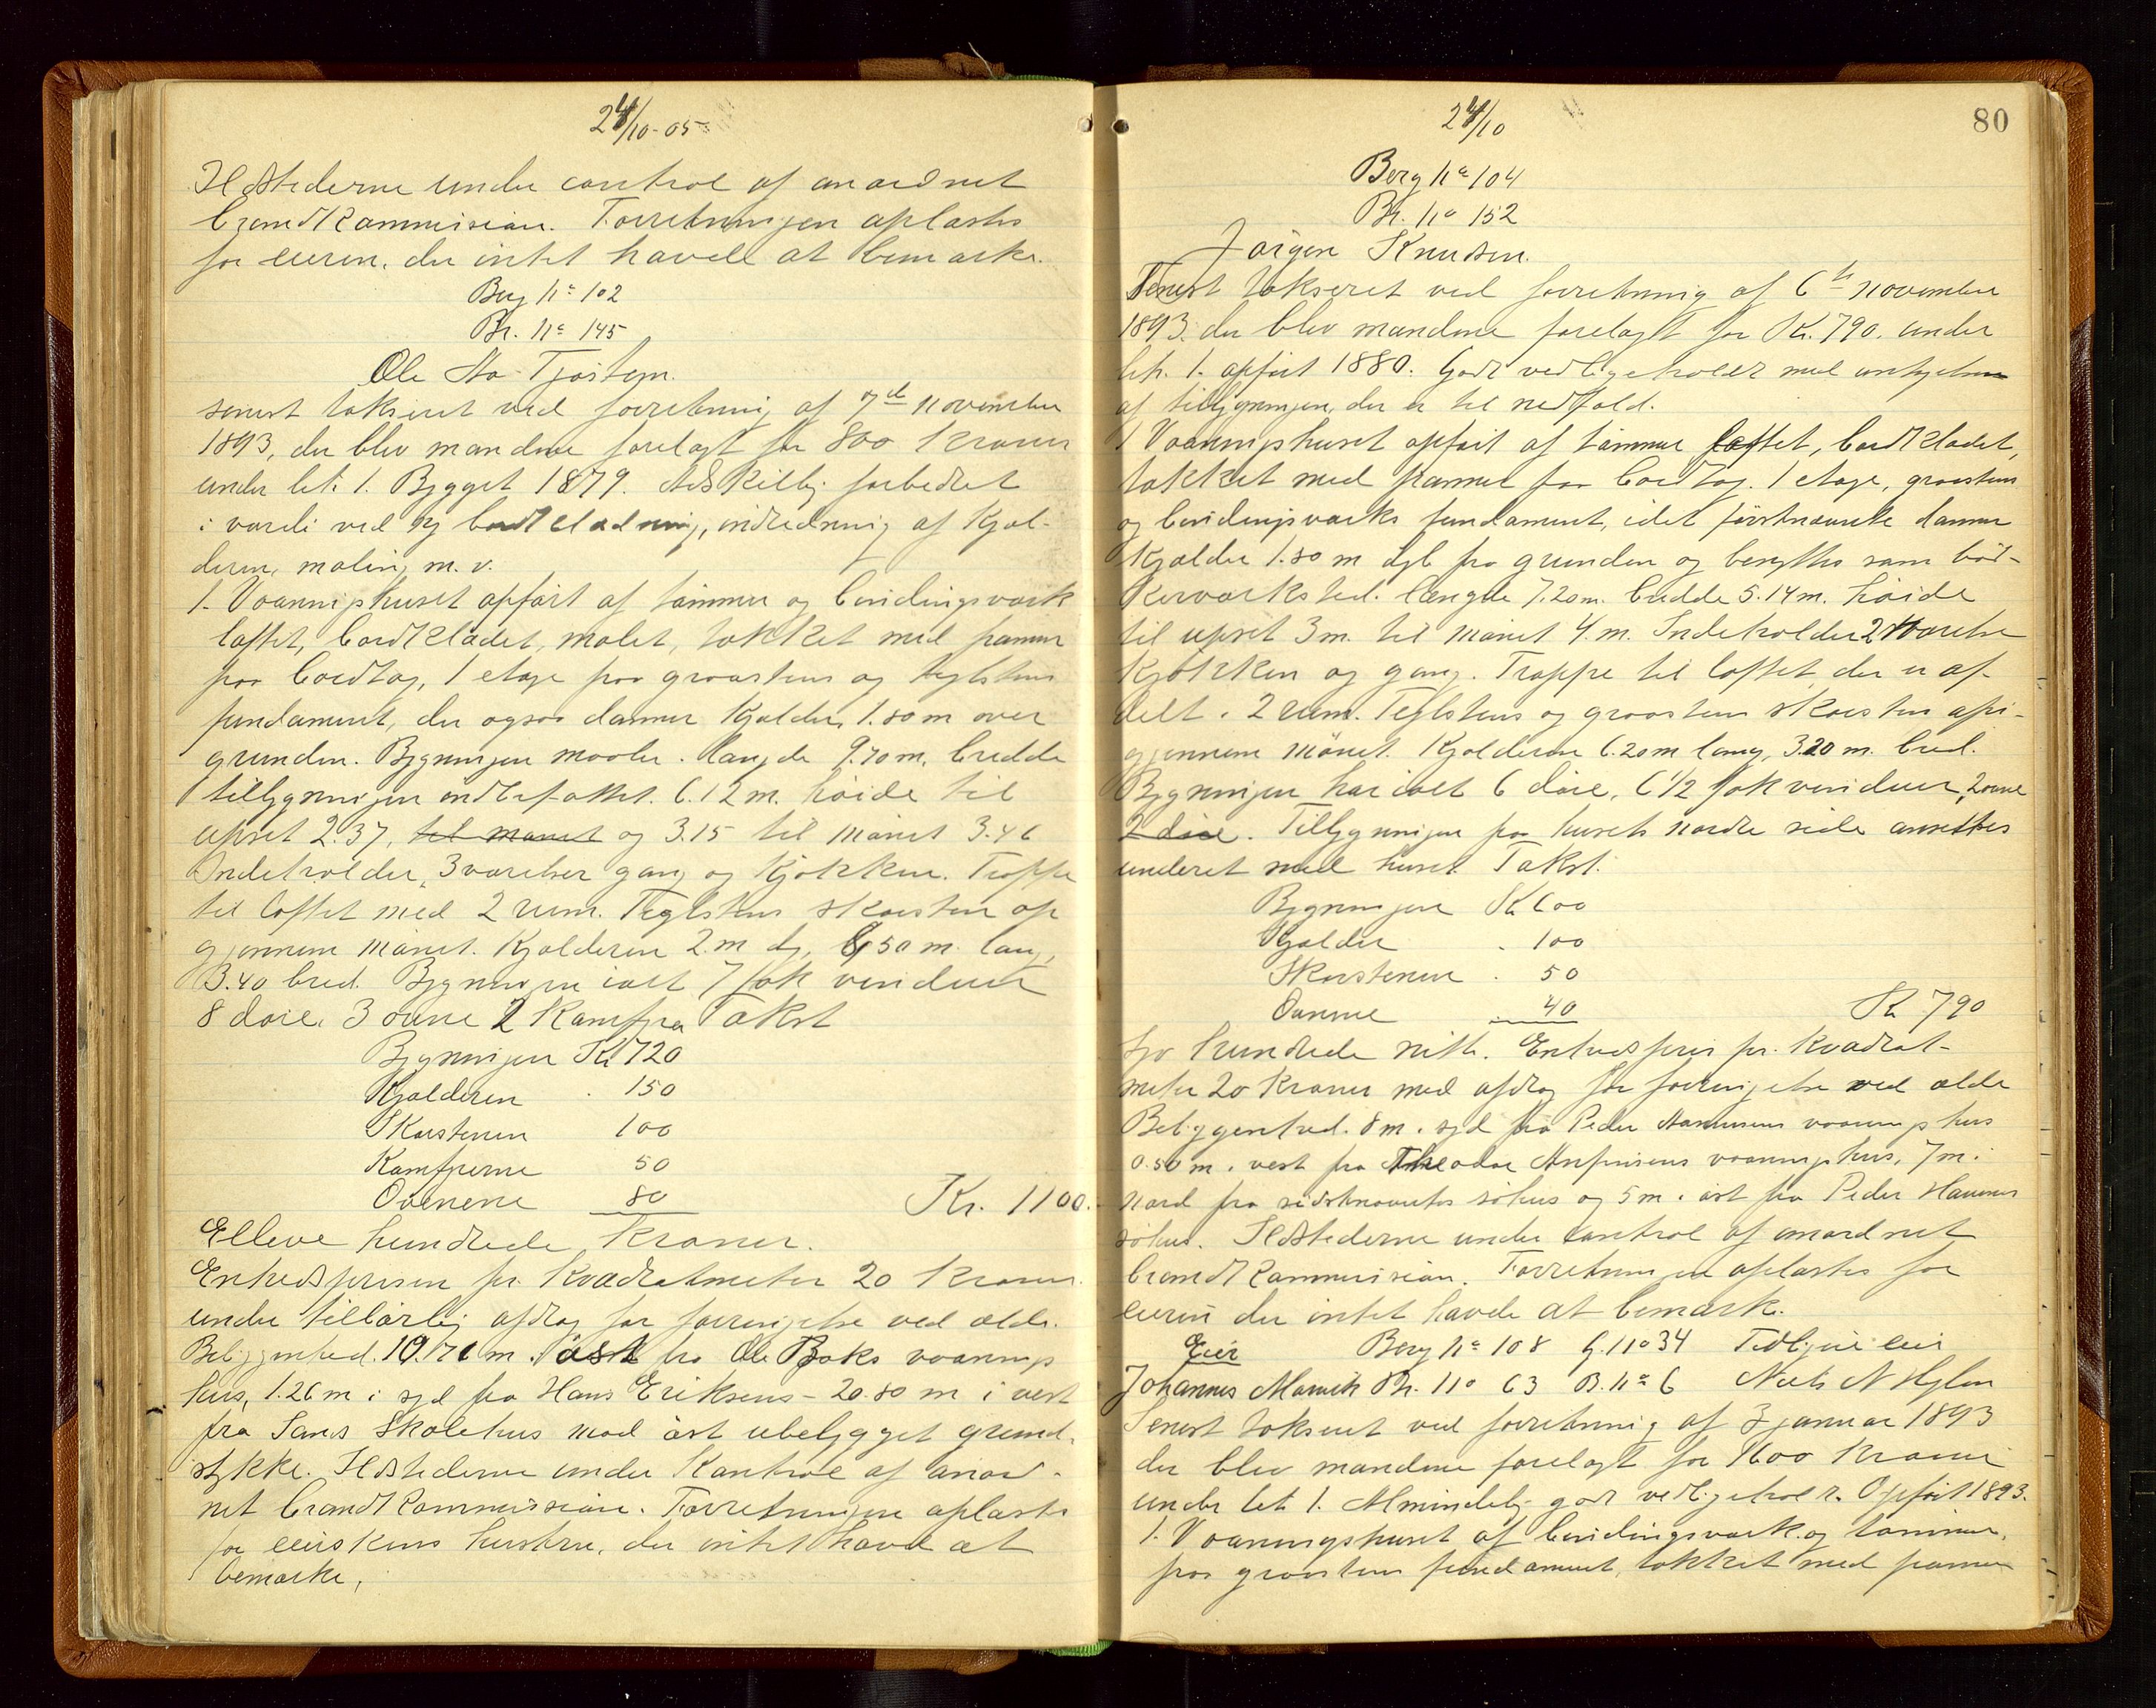 24/10-05
Ildstederne under control af anordnet
brandkommision. Forretningen oplæstes
for eieren, der intet havde at bemærke.
Berg No 102
Br. No 145
Ole Aa Tjøstem.
senest takseret ved forretning af 7de november
1893, der blev mændene forelagt for 800 kroner
under let. 1. Bygget 1879. Adskillig forbedret
i værdi ved ny bordklædning, indredning af kjæl-
deren, maling m. v.
1. Vaaningshuset opført af tømmer og bindingsværk
loftet, bordklædet, malet, tækket med panner
paa bordtag, 1 etage paa graastens og teglstens
fundament, der ogsaa danner kjælder, 1.80 m over
grunden. Bygningen maaler. længde 9.70 m, bredde
tilbygningen indbefattet. 6.12 m. høide til
upset 2.37, til mønet og 3.15 til mønet 3.46
Indeholder, 3 værelser gang og kjøkken. Trappe
til loftet med 2 rum. Teglstens skorsten op
gjennem mønet. Kjælderen 2. m dy, 6,50 m. lang,
3.40 bred. Bygningen ialt 7 fak vinduer
8 døre. 3 ovne 2 Komfyr Takst
Bygningen Kr 720
Kjælderen . 150
Skorstenen 100
Komfyrerne 50
Ovenene 80 Kr. 1100.
Elleve hundrede kroner.
Enhedsprisen pr. kvadratmeter 20 kroner
under tilbørlig afdrag for forringelse ved ælde.
Bebyggenhed. 19.71 m. i øst fra Ole Bøks vaanings
hus, 1.26 m i syd fra Hans Eriksens - 20.80 m i vest
fra Sands Skolehus mod øst ubebygget grund-
stykke. Ildstederne under Kontrol af anord-
net brandkommission. Forretningen oplæstes
for eierskens hustru, der intet havde at
bemærke.
24/10
80
Berg No 104
Br. No 152
Jørgen Knudsen.
Senest takseret ved forretning af 6te november
1893. der blev mændene forelagt for Kr. 790. under
let. 1. opført 1880. Godt vedligeholdt med undtagelse
af tilbygningen, der er til nedfald.
1 Vaaningshuset opført af tømmer loftet, bordklædet,
tækket med panner paa bordtag. 1 etage, graastens
og bindingsværks fundament, idet førstnævnte danner
Kjælder 1.80 m dyb fra grunden og benyttes som bød-
kerværksted. længde 7.20 m. bredde 5.14 m. høide
til upset 3 m. til mønet 4. m. Indeholder 2 værelser
Kjøkken og gang. Trappe til loftet, der er af-
delt i 2 rum. Teglstens og graastens skorsten opi-
gjennem mønet. Kjælderen 6.20 m lang, 3.20 m. bred.
Bygningen har ialt 6 døre, 6 1/2 fak vinduer, 2 ovne
2 døre. Tilbygningen paa husets nordre side ansættes
underet med huset Takst:
Bygningen Kr 600
Kjælder . 100
Skorstenen . 50
Ovnene . 40 Kr 790
Syv hundrede nitti. Enhedspris pr. kvadrat-
meter 20 kroner med afdrag for forringelse ved ælde
Bebyggenhed. 8 m. i syd fra Peder Rasmusens vaaningshus
0.50 m. i vest fra Theodor Arnfinsens vaaningshus, 7 m. i
nord fra sidstnævntes søhus og 5 m. i øst fra Peder Hansens
søhus. Ildstederne under control af anordnet
brandkommision. Forretningen oplæstes for
eieren der intet havde at bemærk.
Eier Berg No 108 G. No 34 Tidligere eier
Johannes Br. No 63 B. No 6 Niels N
Senest takseret ved forretning af 3 januar 1893
der blev mændene forelagt for 1600 Kroner
under let 1. Almindelig godt vedligeholdt. Opført 1893.
1. Vaaningshuset af bindingsværk og tømmer,
paa graastens fundament, tækket med panner